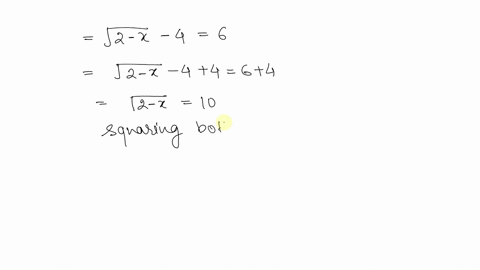 = √2-x - 4 = 6
= √2-x - 4 + 4 = 6 + 4
= √2-x = 10
squaring bot